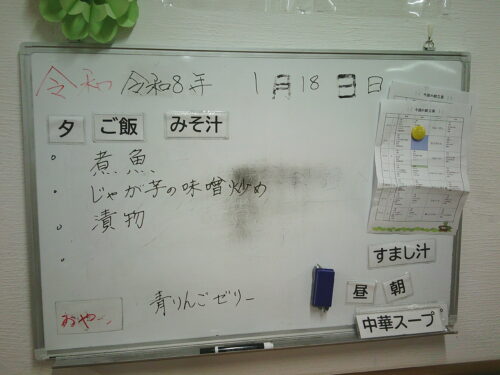 令和 令和8年 1月18日 日
夕 ご飯 みそ汁
煮魚
じゃが芋の味噌炒め
漬物
すまし汁
昼 朝
おやつ 青りんごゼリー
中華スープ